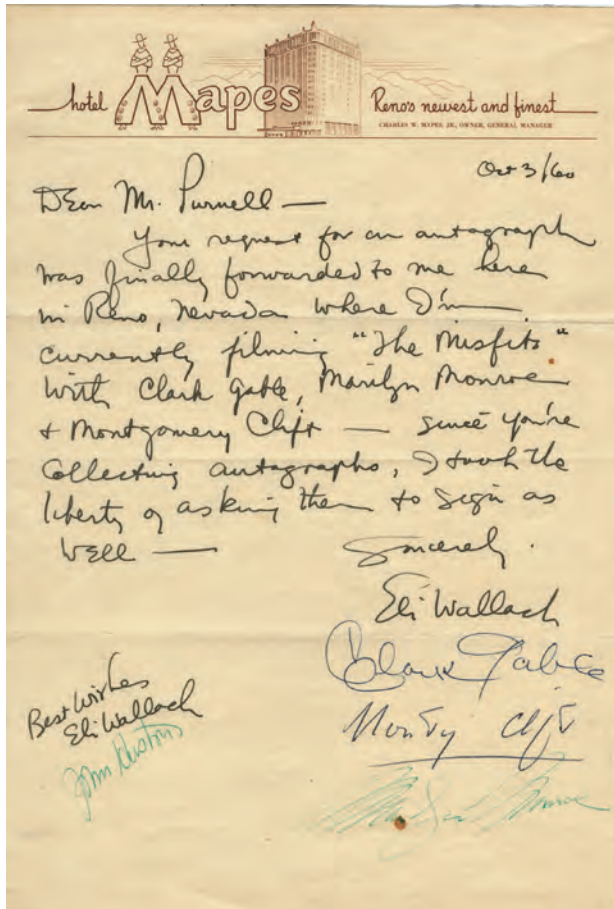 hotel Mapes
Reno's newest and finest
CHARLES W. MAPES, JR., OWNER, GENERAL MANAGER
Oct 3/60
Dear Mr. Purnell —
Your request for an autograph
was finally forwarded to me here
in Reno, Nevada where I'm
currently filming "The Misfits"
with Clark Gable, Marilyn Monroe
+ Montgomery Clift — since you're
collecting autographs, I took the
liberty of asking them to sign as
well —
Sincerely.
Eli Wallach
Clark Gable
Monty Clift
Marilyn Monroe
Best Wishes
Eli Wallach
John Huston